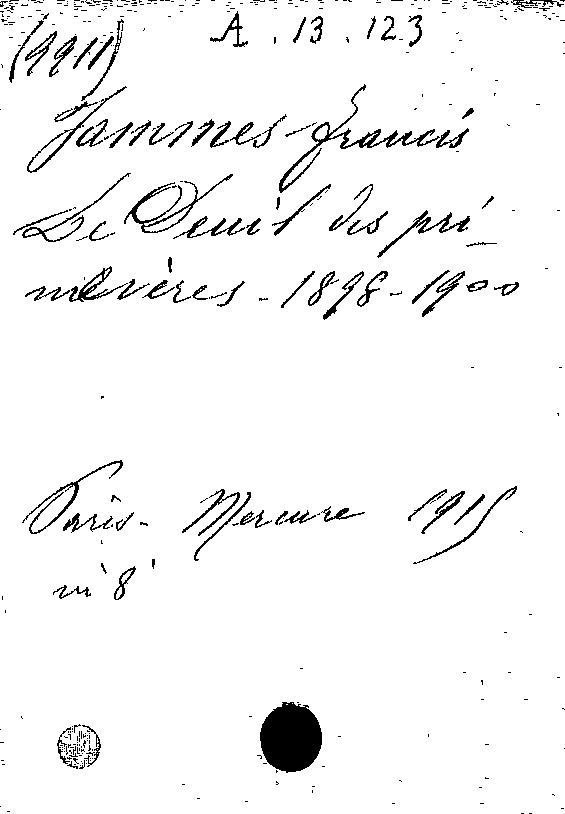 (9911) A.13.123
Jammes Francis
Le Deuil des pri-
mevères - 1898-1900
Paris - Mercure 1915
in 8°